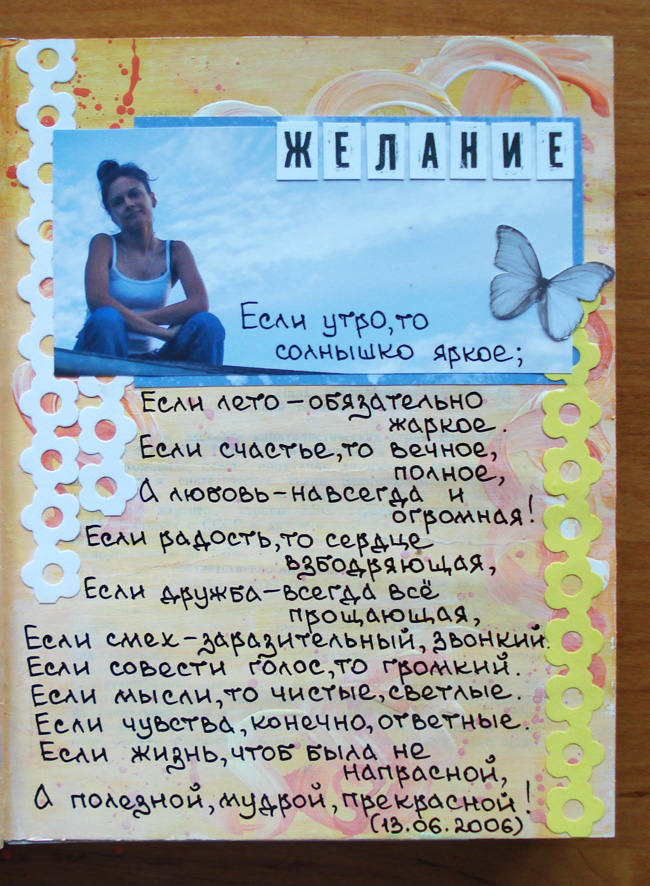 ЖЕЛАНИЕ
Если утро,то
солнышко яркое;
Если лето-обязательно
жаркое.
Если счастье,то вечное,
полное,
А любовь-навсегда и
огромная!
Если радость,то сердце
взбодряющая,
Если дружба-всегда всё
прощающая,
Если смех-заразительный,звонкий.
Если совести голос,то громкий.
Если мысли,то чистые,светлые.
Если чувства,конечно,ответные.
Если жизнь,чтоб была не
напрасной,
А полезной,мудрой,прекрасной!
(13.06.2006)